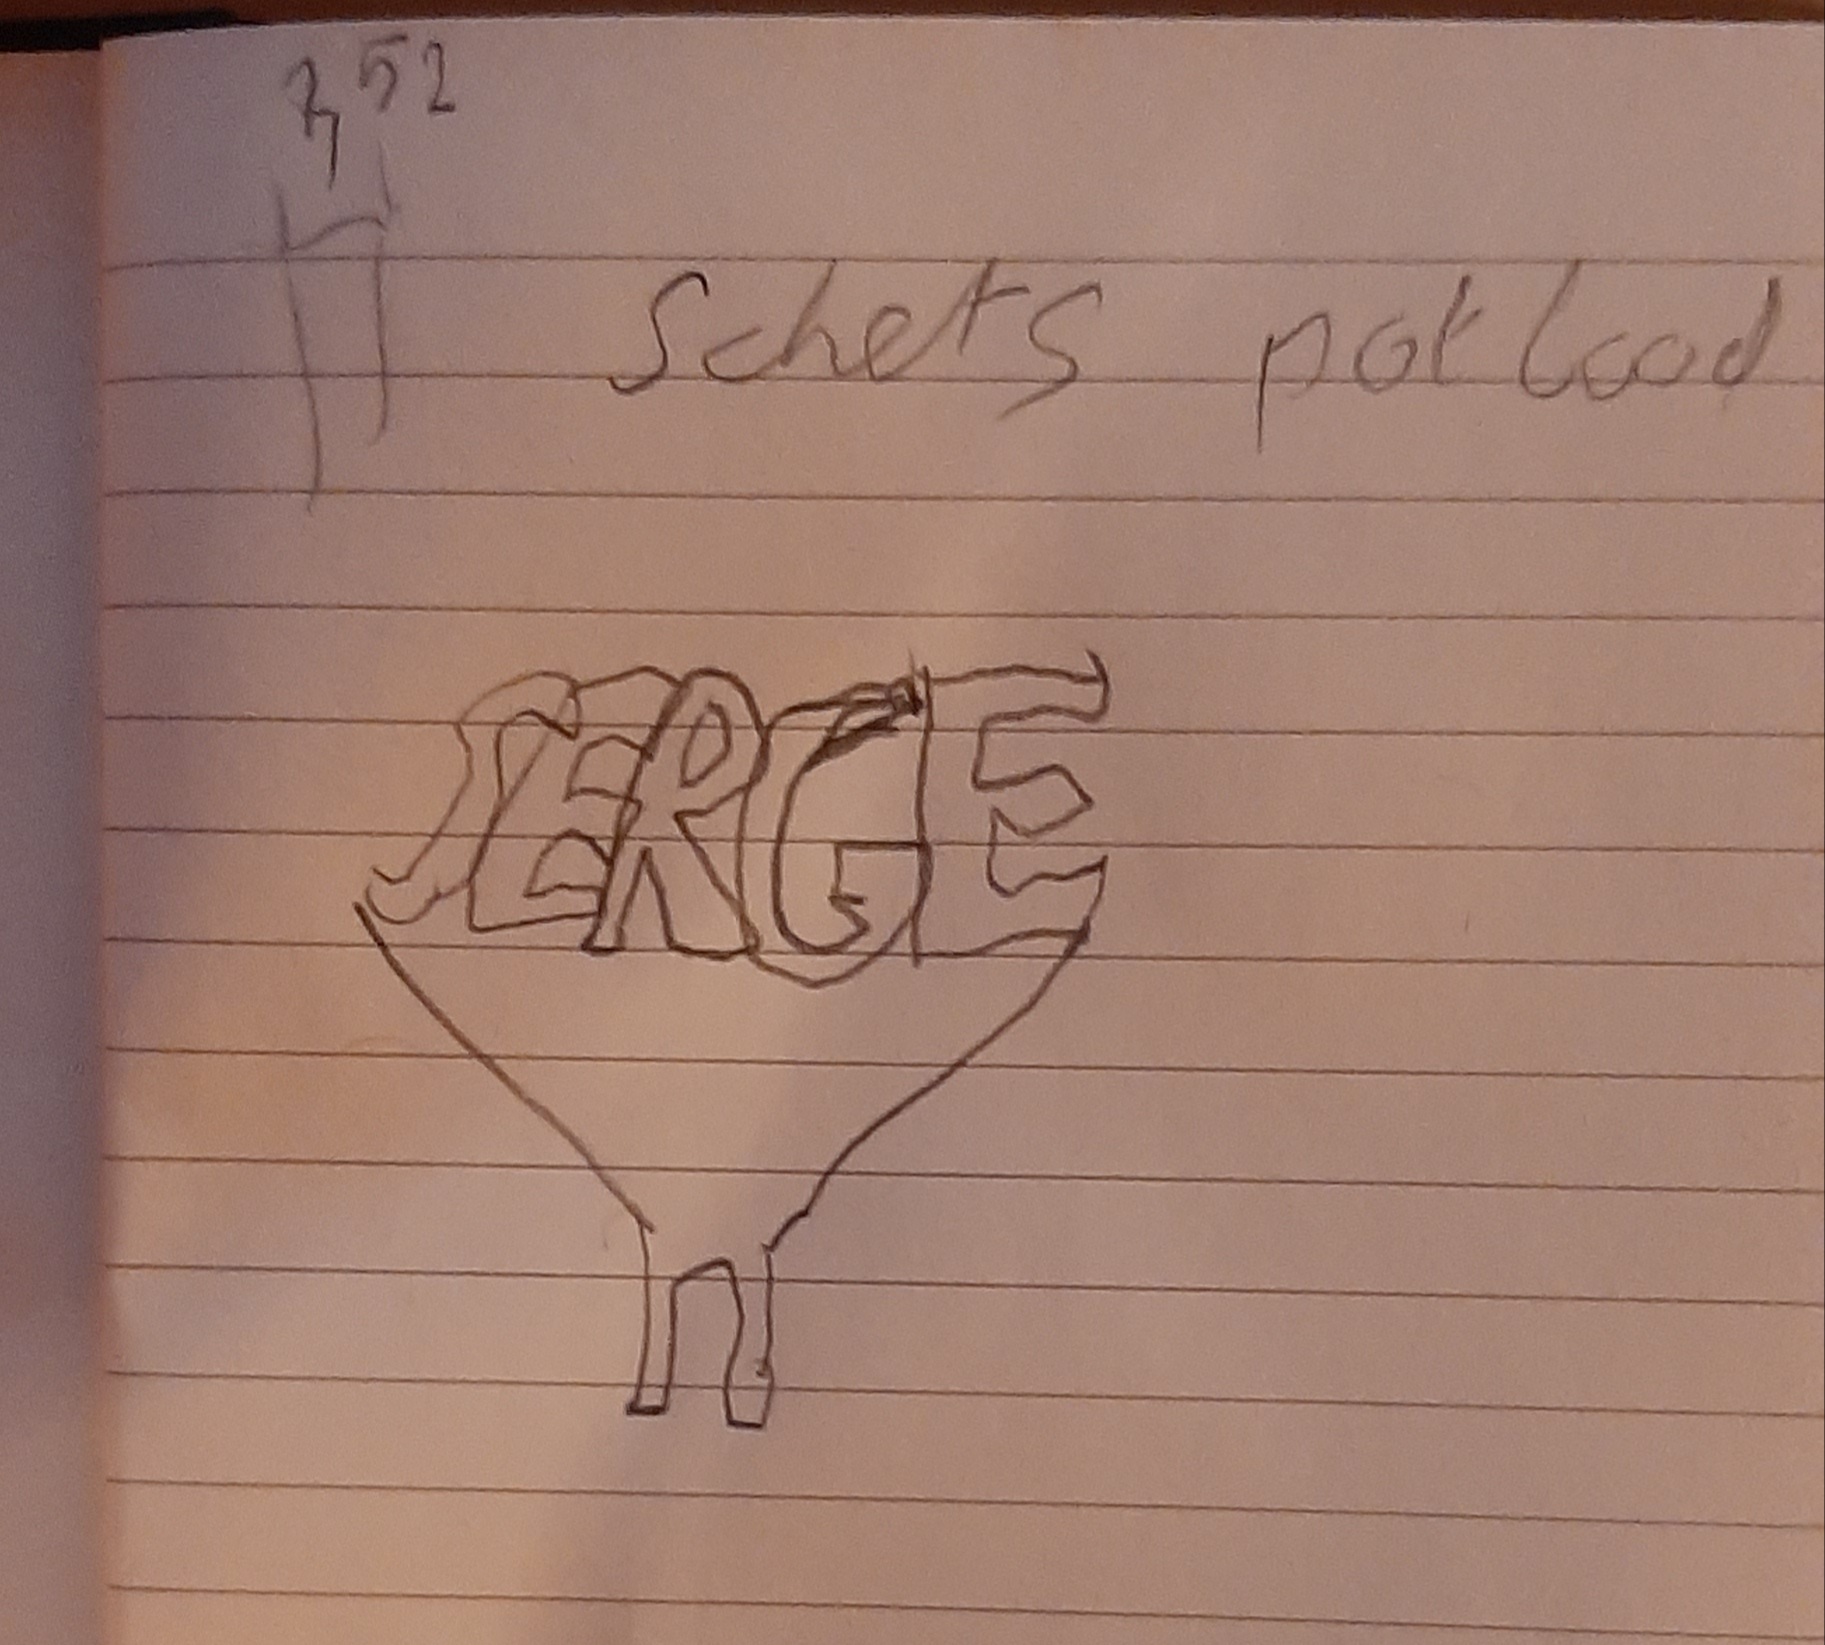 schets potlood
SERGE